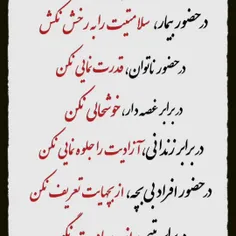 در حضور بیمار، سلامتیت را به رخش نکش
در حضور ناتوان، قدرت نمایی نکن
در برابر غصه دار، خوشحالی نکن
در برابر زندانی، آزادیت را جلوه نمایی نکن
در حضور افراد بی بچه، از بچهایت تعریف نکن